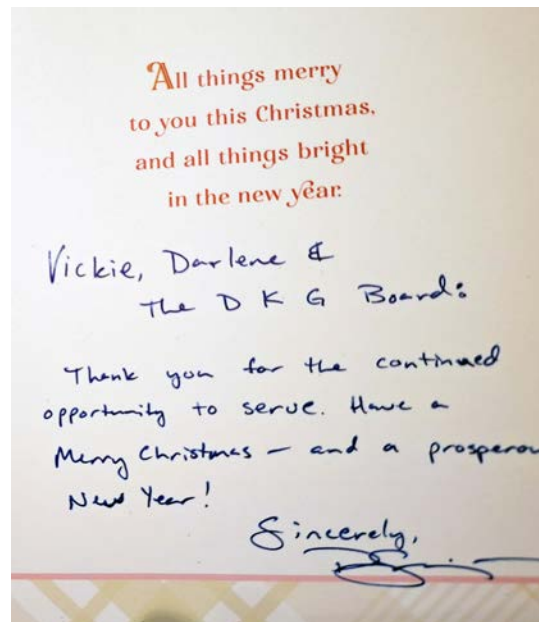 All things merry
to you this Christmas,
and all things bright
in the new year.
Vickie, Darlene &
The D K G Board:
Thank you for the continued
opportunity to serve. Have a
Merry Christmas – and a prosperou
New Year!
Sincerely,